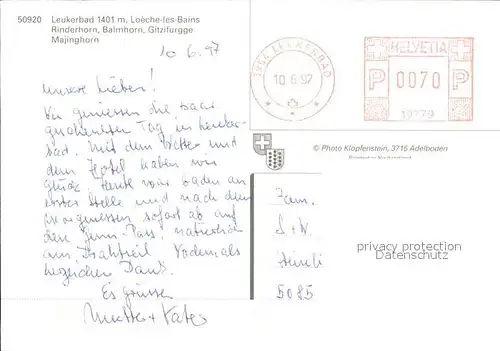 50920 Leukerbad 1401 m, Loèche-les-Bains
Rinderhorn, Balmhorn, Gitzifurgge
Majinghorn
10.6.97
unsere Lieben!
Wir geniessen die paar
Tag in Leuker-
bad. Mit dem Wetter und
dem Hotel haben wir
Glück. Heute war baden an
erster Stelle und nach dem
sofort ab auf
den Gemmi-Pass, natürlich
Vielen als
herzlichen Dank.
Es grüssen
Mutter + Vater
3954 LEUKERBAD
10.6.97
HELVETIA
P 0070 P
© Photo Klopfenstein, 3715 Adelboden
Fam.
S + W
5085
privacy protection
Datenschutz